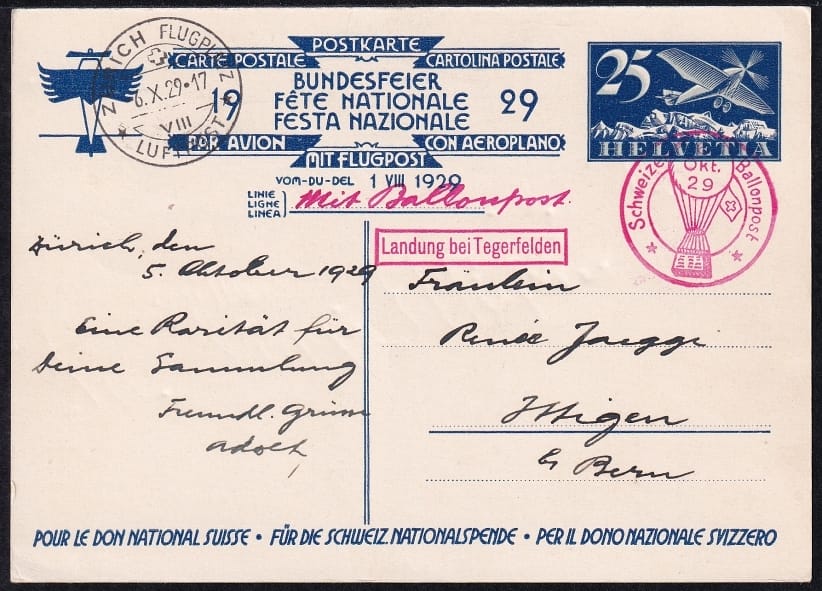 POSTKARTE
CARTE POSTALE CARTOLINA POSTALE
BUNDESFEIER
19 FÊTE NATIONALE 29
FESTA NAZIONALE
PAR AVION CON AEROPLANO
MIT FLUGPOST
VOM-DU-DEL 1 VIII 1929
LINIE
LIGNE
LINEA
Mit Ballonpost.
ZÜRICH FLUGPLATZ
6.X.29·17
VIII
LUFTPOST
25
HELVETIA
Schweizer Ballonpost
Okt.
29
Landung bei Tegerfelden
Zürich, den
5. Oktober 1929
Eine Rarität für
Deine Sammlung
Freundl. Grüsse
Adolf
Fräulein
Renée Jaeggi
Ittigen
b/ Bern
POUR LE DON NATIONAL SUISSE • FÜR DIE SCHWEIZ. NATIONALSPENDE • PER IL DONO NAZIONALE SVIZZERO